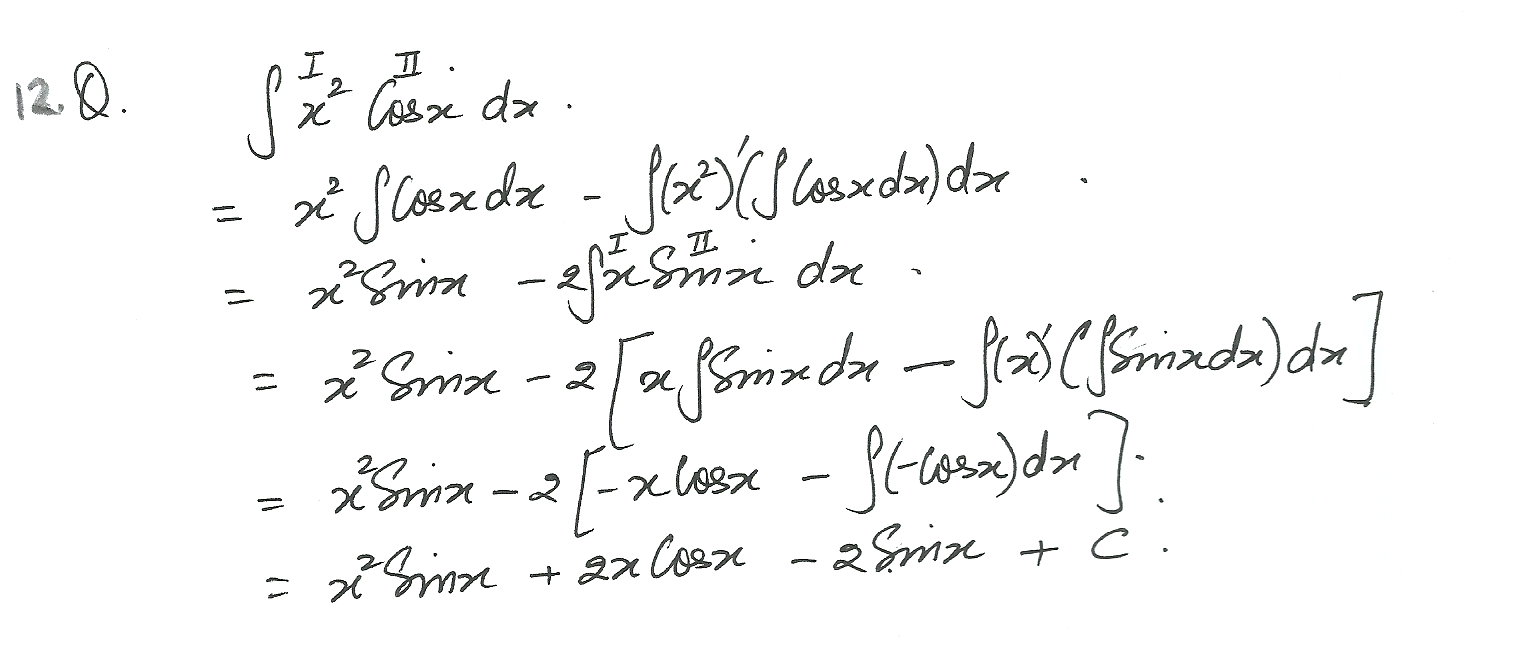 12. Q. ∫ x² Cosx dx .
= x² ∫Cosx dx - ∫(x²)'(∫Cosxdx) dx .
= x² Sinx - 2∫x Sinx dx .
= x² Sinx - 2[x∫Sinx dx - ∫(x)'(∫Sinxdx) dx]
= x² Sinx - 2[-x Cosx - ∫(-Cosx) dx].
= x² Sinx + 2x Cosx - 2 Sinx + C .